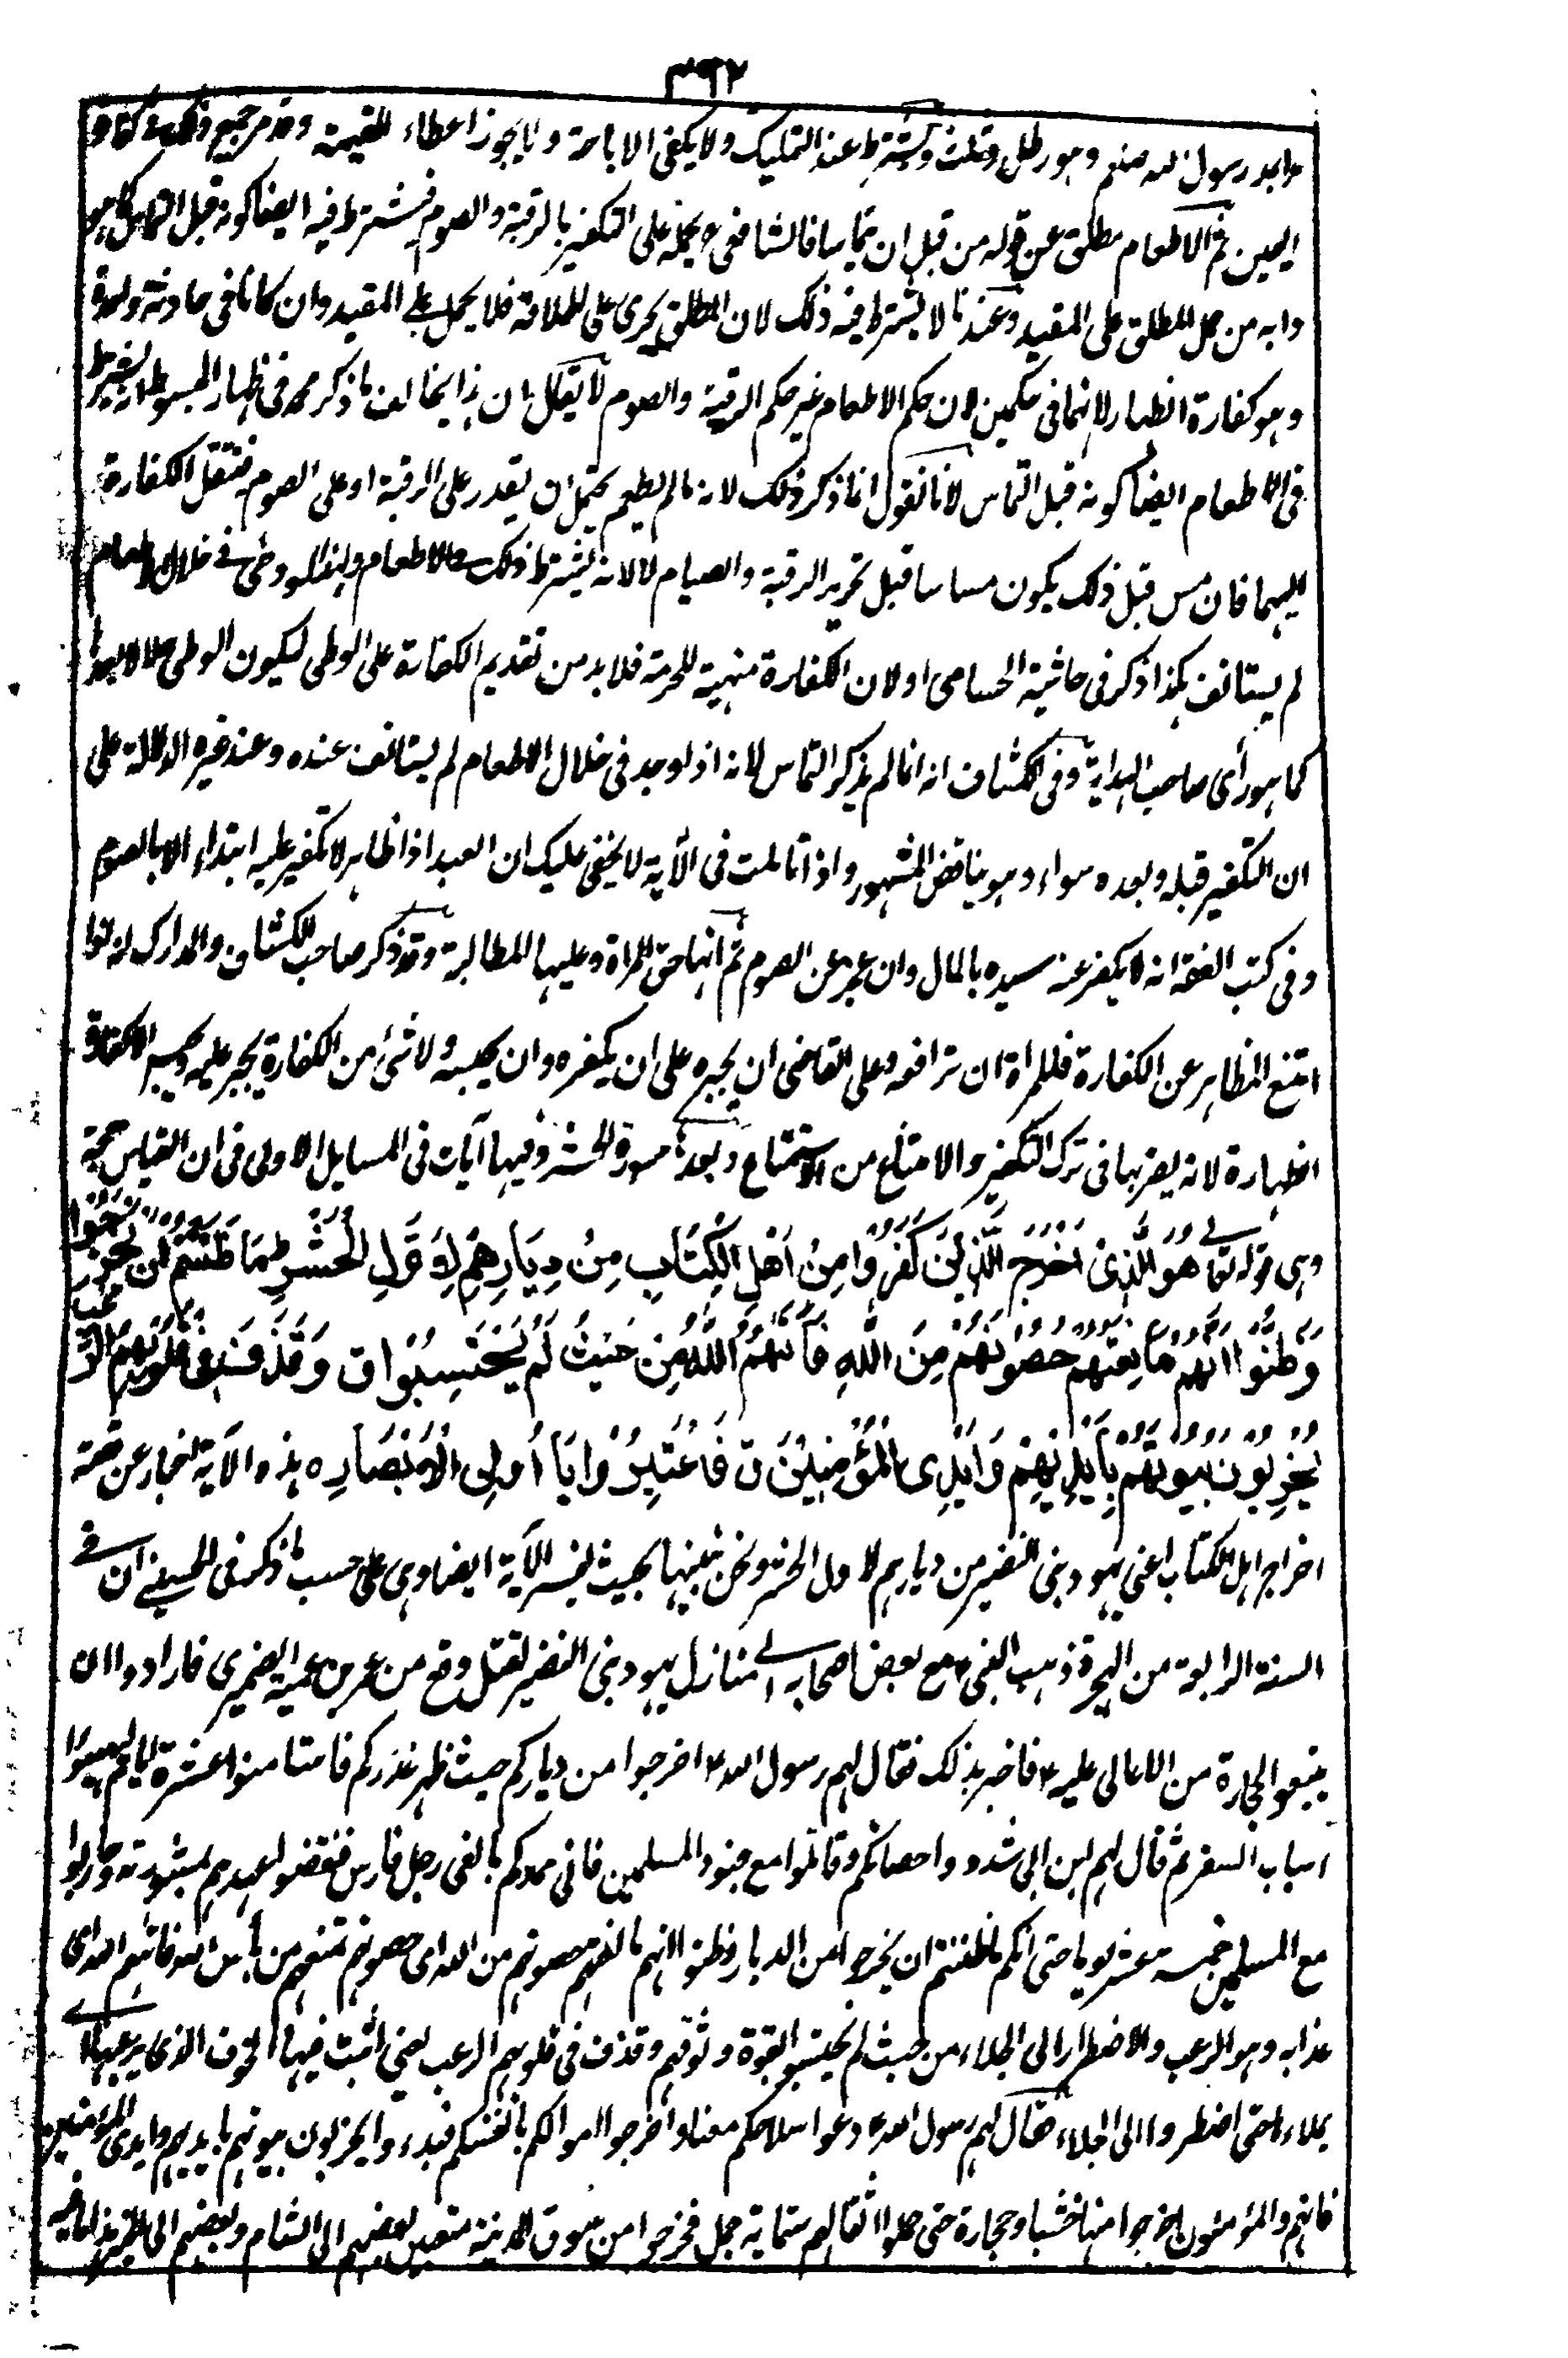 ٣٩٢
بمد رسول الله صلعم وهو رطل وثلث ويشترط عنده التمليك ولا يكفى الاباحة ولا يجوز اعطاء القيمة وقد مر جميع ذلك فى كفارة
اليمين ثم الاطعام مطلق عن قوله من قبل ان يتماسا فالشافعى رح يحمله على التكفير بالرقبة والصوم فيشترط فيه ايضا كونه قبل التماس كما هو
دابه من حمل المطلق على المقيد وعندنا لا يشترط فيه ذلك لان المطلق يجرى على اطلاقه فلا يحمل على المقيد وان كانا فى حادثة واحدة
وهو كفارة الظهار لانهما فى حكمين لان حكم الاطعام غير حكم الرقبة والصوم لا يقال ان هذا يخالف ما ذكر محمد فى ظهار المبسوط انه يشترط
فى الاطعام ايضا كونه قبل التماس لانا نقول انما ذكر ذلك لانه ما لم يطعم يحتمل ان يقدر على الرقبة او على الصوم فتنتقل الكفارة
اليهما فان مس قبل ذلك يكون مساسا قبل تحرير الرقبة والصيام لا لانه يشترط ذلك حال الاطعام ولهذا لو وطى فى خلال الاطعام
لم يستانف هكذا ذكر فى حاشية الحسامى او لان الكفارة منهية للحرمة فلا بد من تقديم الكفارة على الوطى ليكون الوطى حلالا بعدها
كما هو رأى صاحب الهداية وفى الكشاف انه انما لم يذكر التماس لانه اذا وجد فى خلال الاطعام لم يستانف عنده وعند غيره الدلالة على
ان التكفير قبله وبعده سواء وهو يناقض المشهور واذا تاملت فى الآية لا يخفى عليك ان العبد اذا ظاهر لا تكفير عليه ابتداء الا بالصوم
وفى كتب الفقه انه لا يكفر عنه سيده بالمال وان عجز عن الصوم ثم انها حق المراة وعليها المطالبة وقد ذكر صاحب الكشاف والمدارك انه لو
امتنع المظاهر عن الكفارة فللمراة ان ترافعه وعلى القاضى ان يجبره على ان يكفره وان يحبسه ولا شئ من الكفارة يجبر عليه ويحبس الا كفارة
الظهار لانه يضر بها فى ترك التكفير والامتناع من الاستمتاع وبعدها سورة الحشر وفيها آيات فى المسايل الاولى فى ان القياس حجة
وهى قوله تعالى هُوَ الَّذِىْ اَخْرَجَ الَّذِيْنَ كَفَرُوْا مِنْ اَهْلِ الْكِتَابِ مِنْ دِيَارِهِمْ لِاَوَّلِ الْحَشْرِ ط مَا ظَنَنْتُمْ اَنْ يَّخْرُجُوْا
وَظَنُّوْا اَنَّهُمْ مَانِعَتُهُمْ حُصُوْنُهُمْ مِنَ اللّٰهِ فَاَتٰهُمُ اللّٰهُ مِنْ حَيْثُ لَمْ يَحْتَسِبُوْا ق وَقَذَفَ فِىْ قُلُوْبِهِمُ الرُّعْبَ
يُخْرِبُوْنَ بُيُوْتَهُمْ بِاَيْدِيْهِمْ وَاَيْدِى الْمُؤْمِنِيْنَ ق فَاعْتَبِرُوْا يَا اُولِى الْاَبْصَارِ ه هذه الآية اخبار عن قصة
اخراج اهل الكتاب اعنى يهود بنى النضير من ديارهم لاول الحشر ونحن نبينها بحيث يفسر الآية ايضا وهى على حسب ما ذكر فى الحسينى ان فى
السنة الرابعة من الهجرة ذهب النبى ع مع بعض اصحابه الى منازل يهود بنى النضير لقتل وقع من عمر بن عمية الضميرى فارادوا ان
يضعوا الحجارة من الاعالى عليه ع فاخبر بذلك فقال لهم رسول الله ع اخرجوا من دياركم حيث ظهر غدركم فاستامنوا عشرة ايام ليهيئوا
اسباب السفر ثم قال لهم ابن ابى شددوا حصانكم وقاتلوا مع جنود المسلمين فانى ممدكم بالفى رجل فارس فنقضوا عهدهم بمشورته وحاربوا
مع المسلمين خمسة عشر يوما حتى انكم ما ظننتم ان يخرجوا من الديار وظنوا انهم مانعتهم حصونهم من الله اى حصونهم تمنعهم من بأس الله فاتهم الله اى
عذابه وهو الرعب والاضطرار الى الجلاء من حيث لم يحتسبوا لقوة وثوقهم وقذف فى قلوبهم الرعب يعنى اثبت فيها الخوف الذى يرعبها اى
يملاءها حتى اضطروا الى الجلاء فقال لهم رسول الله ع دعوا سلاحكم معنا واخرجوا اموالكم بانفسكم فبدءوا يخربون بيوتهم بايديهم وايدى المؤمنين
فانهم والمؤمنون اخرجوا منها خشبا وحجارة حتى حملوا اثقالهم ستماية جمل فخرجوا من سوق المدينة متعين بعضهم الى الشام وبعضهم الى خيبر